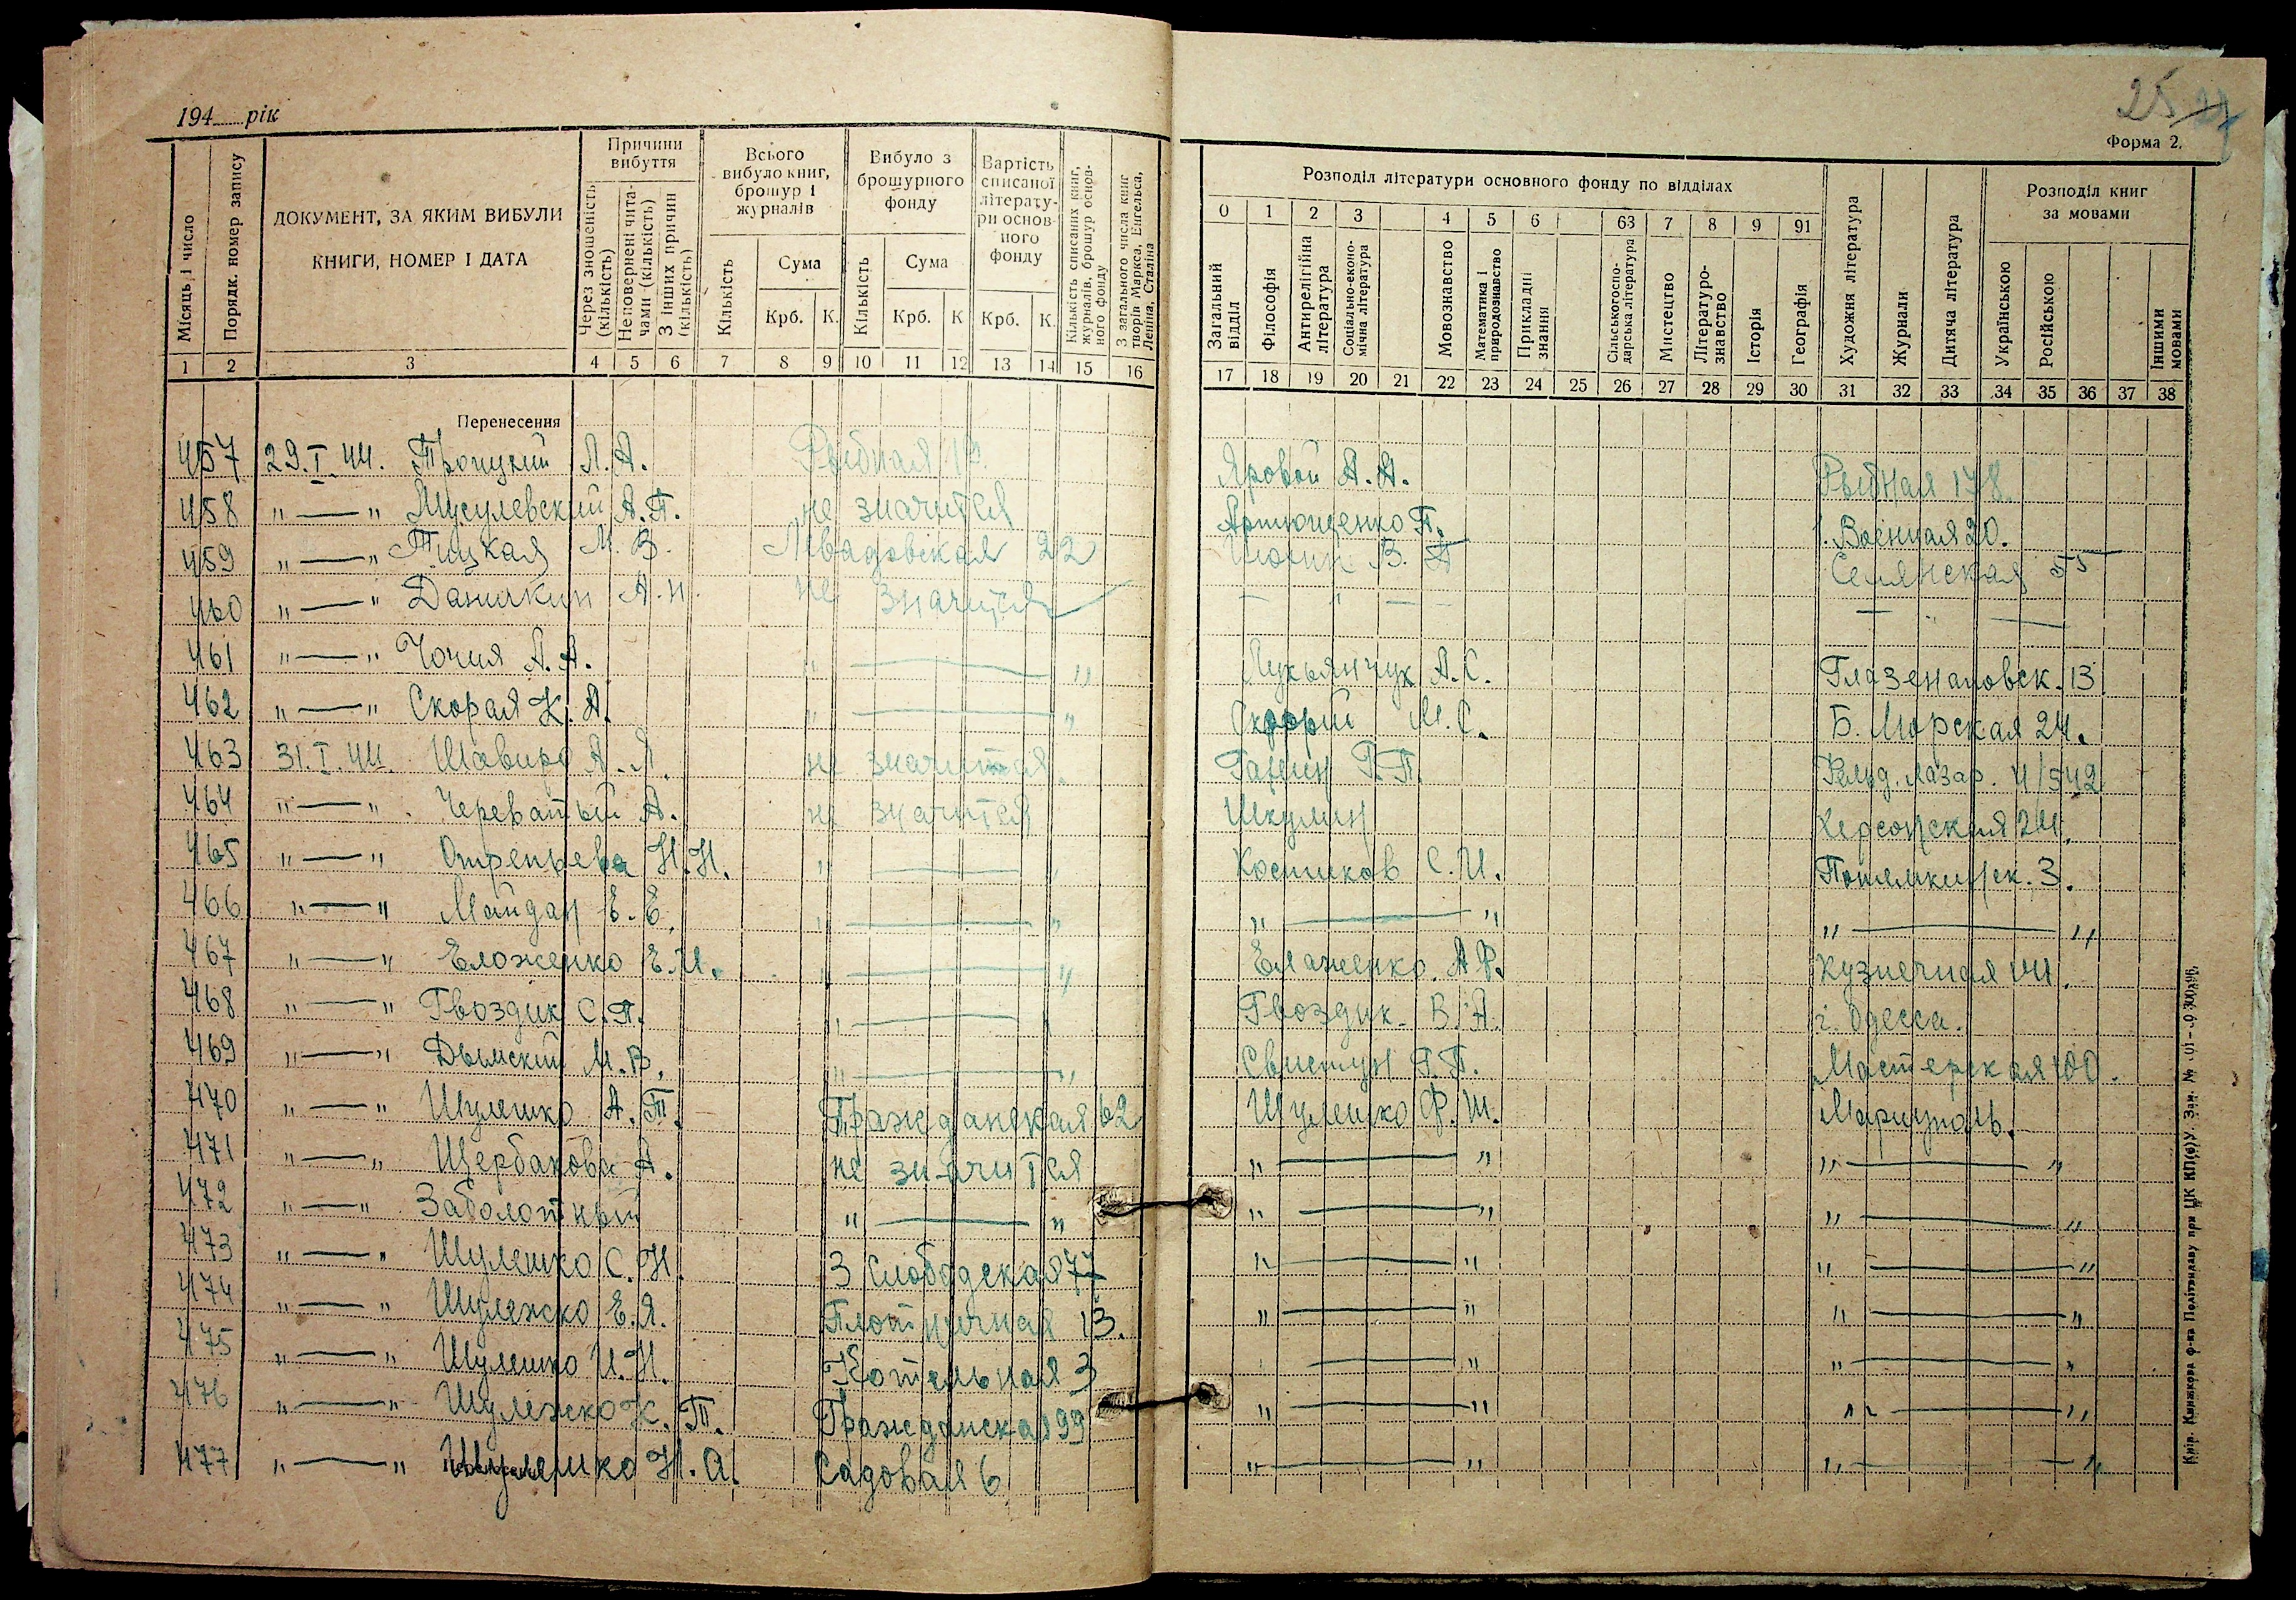 194 рік
25
Форма 2.
Місяць і число
Порядк. номер запису
ДОКУМЕНТ, ЗА ЯКИМ ВИБУЛИ КНИГИ, НОМЕР І ДАТА
Причини вибуття
Через зношеність (кількість)
Неповернені читачами (кількість)
З інших причин (кількість)
Всього вибуло книг, брошур і журналів
Кількість
Сума
Крб. К.
Вибуло з брошурного фонду
Кількість
Сума
Крб. К
Вартість списаної літератури основного фонду
Крб. К.
Кількість списаних книг, журналів, брошур основного фонду
З загального числа книг творів Маркса, Енгельса, Леніна, Сталіна
Розподіл літератури основного фонду по відділах
0 1 2 3 4 5 6 63 7 8 9 91
Загальний відділ
Філософія
Антирелігійна література
Соціально-економічна література
Мовознавство
Математика і природознавство
Прикладні знання
Сільськогосподарська література
Мистецтво
Літературознавство
Історія
Географія
Художня література
Журнали
Дитяча література
Розподіл книг за мовами
Українською
Російською
Іншими мовами
1 2 3 4 5 6 7 8 9 10 11 12 13 14 15 16
17 18 19 20 21 22 23 24 25 26 27 28 29 30 31 32 33 34 35 36 37 38
Перенесення
457 29.I.44. Троицкий Л. А. Рыбная Яровой А. А. Рыбная 178
458 "—" Мусулевский А. П. не значится Артюшенко П. 1. Военная 20.
459 "—" Тицкая М. В. Левадовская 22 В. А Селянская 55
460 "—" Данилкин А. Н. не значится — " — — " —
461 "—" Чочия А. А. "—" Лукьянчук А. С. Глазенаповск. 13
462 "—" Скорая К. А. "—" Скорий М. С. Б. Морская 24.
463 31.I.44. Шавиро А. Л. не значится. Ганин Г. П. Гельд. лазар. 4/542
464 "—". Череватый А. не значится Шкулин Херсонская 24.
465 "—" Отрепьева Н. Н. "—" Костиков С. И. Потемкинск. 3.
466 "—" Майдан Е. Е. "—" "—" "—"
467 "—" Еложенко Е. И. "—" Елаженко А Ф. Кузнечная
468 "—" Гвоздик С. П. "—" Гвоздик В. А. г. Одесса.
469 "—" Дымский М. В. "—" Свистун Г. П. Мастерская 100.
470 "—" Шулешко А. Т. Гражданская 62 Шулешко Ф. Ш. Мариуполь.
471 "—" Щербакова А. не значится "—" "—"
472 "—" Заболотный "—" "—" "—"
473 "—" Шулешко С. Н. 3 Слободская 77 "—" "—"
474 "—" Шулежко Е. Я. Плотничная 13. "—" "—"
475 "—" Шулешко И. Н. Котельная 3 "—" "—"
476 "—" Шулежко К. Т. Гражданская 99 "—" "—"
477 "—" Шулешко Н. А. Садовая 6 "—" "—"